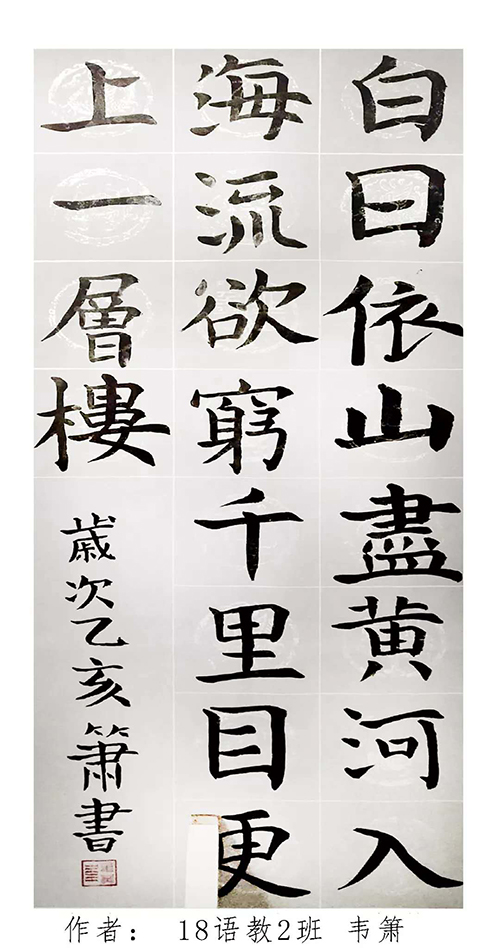 白日依山盡黄河入
海流欲窮千里目更
上一層樓
歲次乙亥簫書
作者： 18语教2班 韦箫